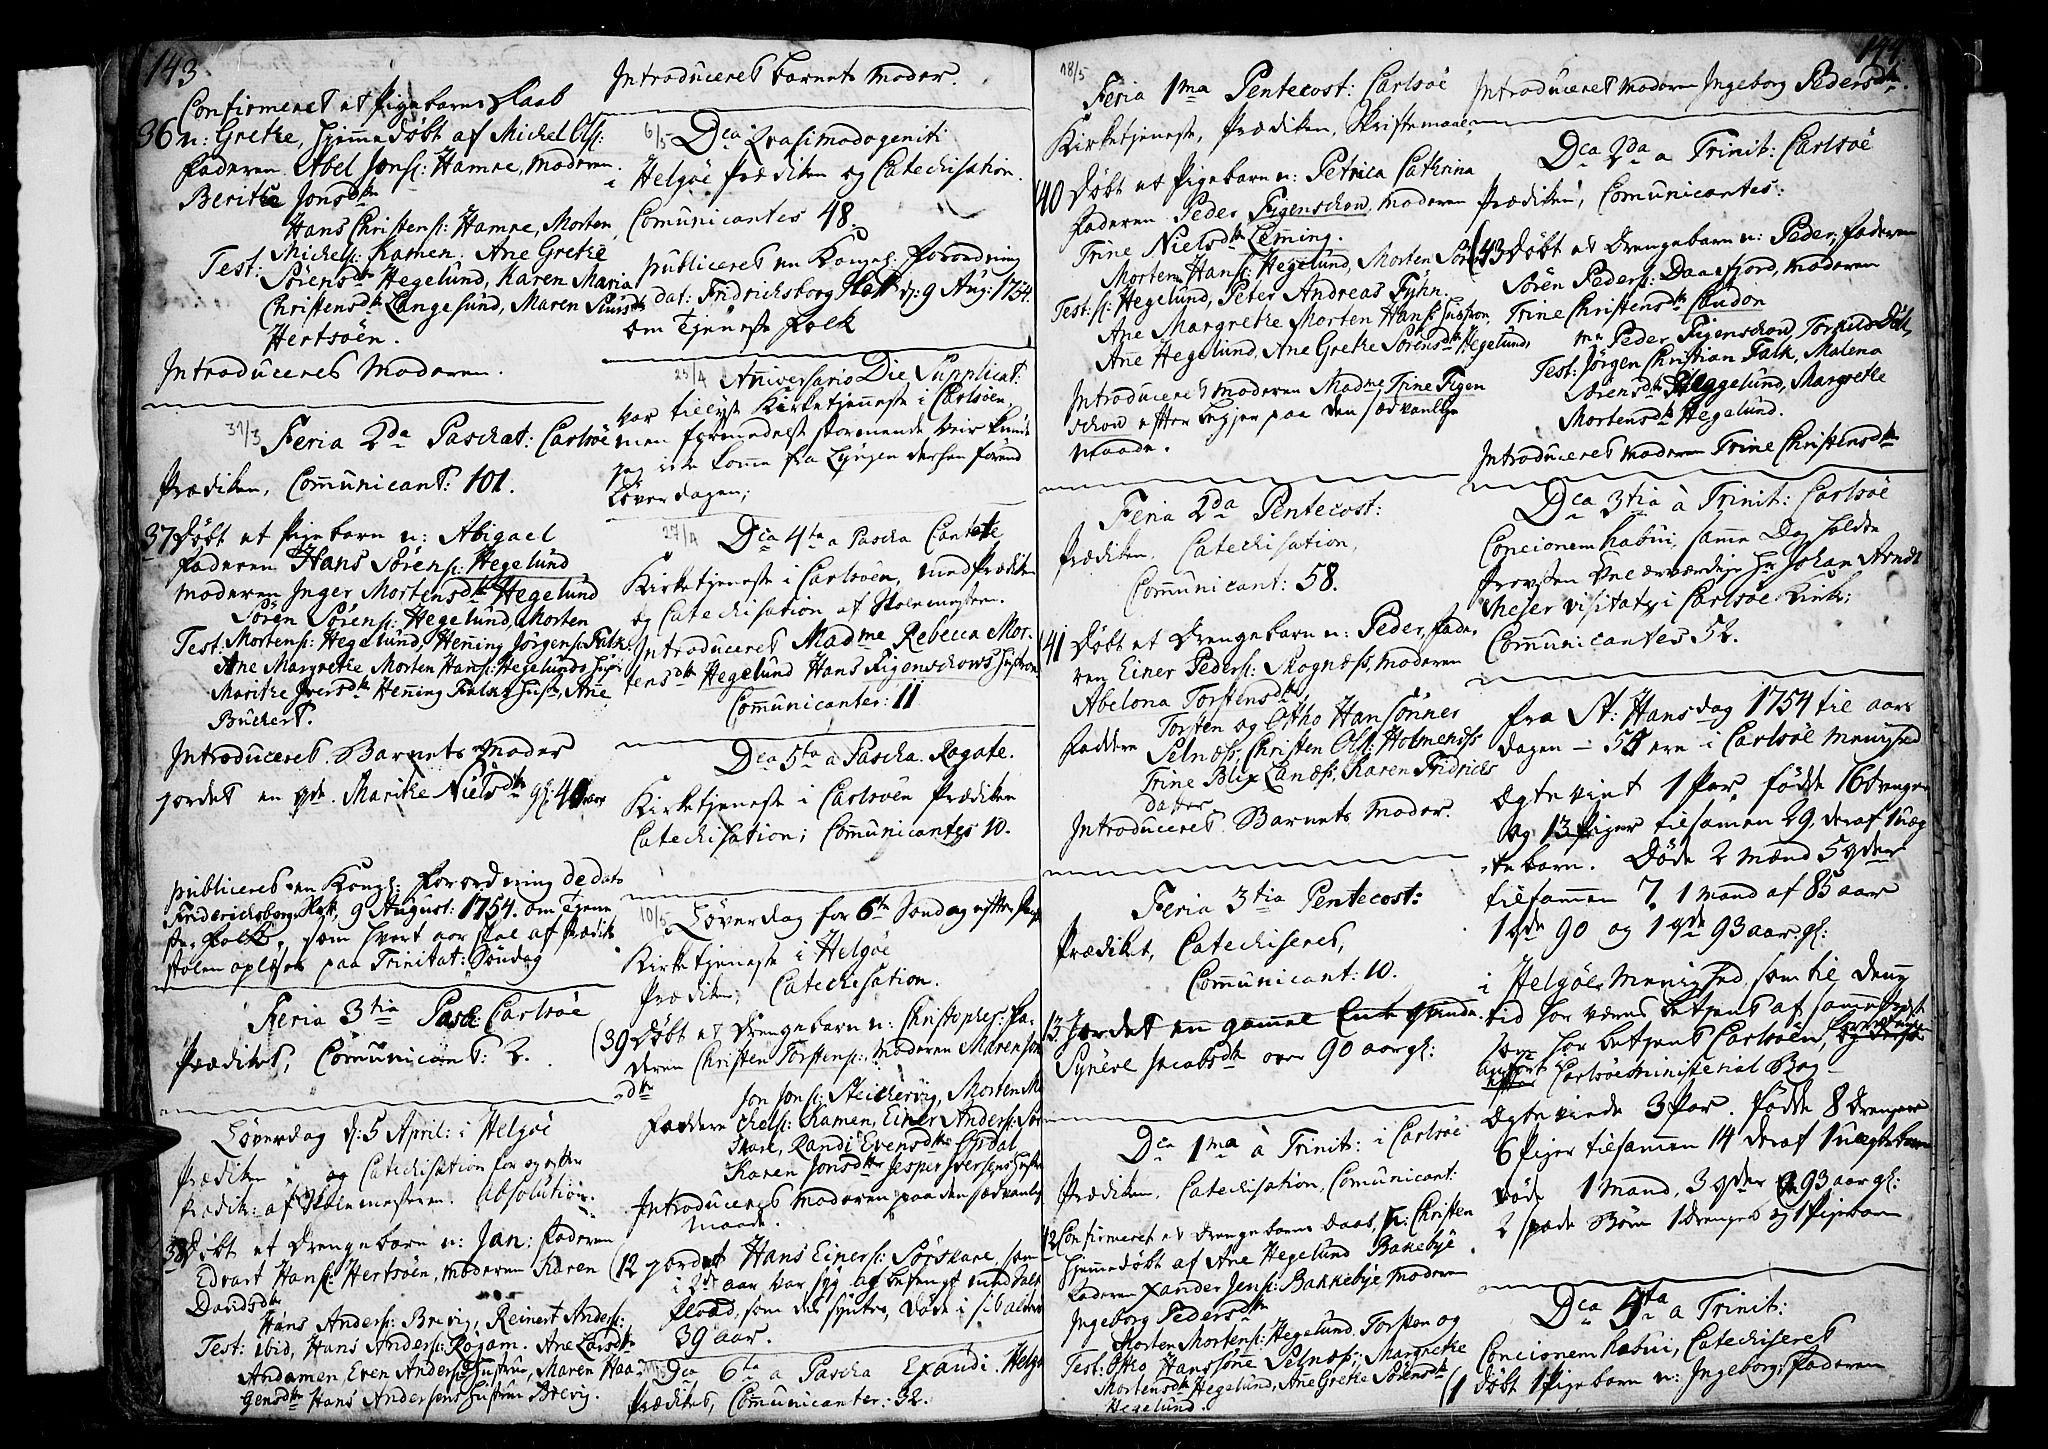 143
Confirmeret et Pigebarns Daab
36 n: Grethe, hjemme døbt af Michel Ols:
Faderen Abel Jons: Hamre, Moderen
Beritha Jonsdtr
Hans Christens: Hamre, Morten
Michels: Kamen. Ane Grethe
Test: Sørensdtr Hegelund, Karen Maria
Christensdtr Langesund, Maren
Hertsöen.
Introduceret Moderen.
31/3 Feria 2da Paschat: Carlsöe
Prædiken, Communicant: 101.
37 Døbt et Pigebarn n: Abigael
Faderen Hans Sörens: Hegelund
Moderen Inger Mortensdtr Hegelund
Sören Sörens: Hegelund, Morten
Test: Mortens: Hegelund, Henning Jörgens: Falk
Ane Margrethe Morten Hans: Hegelunds Hustr:
Marithe Iversdtr Henning Falks Hustr, Ane
Büchert.
Introduceret Barnets Moder
jordet en qde. Marithe Nielsdtr gl: 40 aar
publiceret en Kongl: Forordning de dato
Friderichsborg Slott, 9 August: 1754. om Tiene
ste Folk, som hvert aar skal af Prædike
stolen oplæses paa Trinitat: Søndag
Feria 3tia Pasch Carlsöe
Prædiket, Communicant: 2.
Løverdag d: 5 April: i Helgöe
Prædiken og Catechisation for og efter
Prædik: af Skolemesteren. Absolution.
38 Døbt et Drengebarn n: Jan: Faderen
Edvart Hans: Hertsöen, Moderen Karen
Davidsdtr
Hans Anders: Brevig, Reinert Anders:
Test: ibid, Hans Anders: Rögam. Ane Larsdtr
Andamen Even Anders: Hustru, Maren Haa-
gensdtr Hans Andersens Hustrue Brevig.
Introduceret barnets moder.
6/5 Dca Quasimodogeniti
i Helgöe Prædiken og Catechisation.
Comunicantes 48.
publiceret en Kongel: Forordning
dat: Fridrichsborg Slott d: 9 Aug: 1754.
om Tjeneste Folk
25/4 Aniversario Die Supplicat:
var tillyst Kirketjenneste i Carlsöen,
men formedelst stormende Veir kunde
jeg icke komme fra Lyngen dersen førend
Løverdagen;
27/4 Dca 4ta a Pascha Cantate
Kirketjeneste i Carlsöen, med Prædiken
og Catechisation af Skolemesteren.
Introduceret Madme Rebecca Mor-
tensdtr Hegelund Hans Figenschows Hustrue
Communicanter: 11
Dca 5ta a Pascha. Rogate.
Kirketjeneste i Carlsöen Prædiken
Catechisation; Communicantes 10.
10/5 Løverdag for 6te Søndag efter Pask
Kirketjeneste i Helgöe
Prædiken; Catechisation.
(39 Døbt et Drengebarn n: Christopher: Fa-
deren Christen Torstens: Moderen Maren Jons
dtr
Jon Jons: Steichervig, Morten Mi
Faddere chels: Kamen, Einer Anders: Sör
skare, Randi Evensdtr Ersdal,
Karen Jonsdtr Jesper Iversens Hustru
Introduceret Moderen paa den sædvanlig
Maade.
(12 jordet Hans Einers: Sörskare, som
i 2de aar var syg af befengt
flood, som det syntes, døde i sit alder
39 aar.
Dca 6ta a Pascha Exaudi. Helgö
Prædiket, Communicanter: 32.
144.
18/5 Feria 1ma Pentecost: Carlsöe
Kirketjeneste, Prædiken, Skriftemaal;
40 Døbt et Pigebarn n: Petrica Cathrina
Faderen. Peder Figenschou, Moderen
Trine Nielsdtr Lemming.
Morten Hans: Hegelund, Morten Sören
Test: s: Hegelund, Peter Andreas Fyhn.
Ane Margrethe Morten Hans: Hustroe,
Ane Hegelund, Ane Grethe Sörensdtr Hegelund,
Introduceret Moderen Madme Trine Figen
schou efter begjer paa den sædvanlige
Maade.
Feria 2da Pentecost:
Prædiken, Catechisation,
Communicant: 58.
41 Døbt et Drengebarn n: Peder, Fade-
ren Einer Peders: Skognæss, Moderen
Abelona Torstensdtr
Torsten og Ostho Hansönner
Faddere Selnæss, Christen Ols: Holmenæss
Trine Blix Lanæss, Karen Fridrichs
datter
Introduceret. Barnets Moder.
Feria 3tia Pentecost:
Prædiket, Catechiseret,
Communicant: 10.
13. Jordet en gammel Enke qvinde
Synere Jacobsdtr over 90 aar gl:
Dca 1ma à Trinit: i Carlsöe
Prædiken, Catechisation, Comunicant:
42 Confirmeret et Drengebarns Daab, N: Christen
hjemmedøbt af Ane Hegelund Bakkebye
Faderen Xander Jens: Bakkebye, Moderen
Ingeborg Pedersdtr
Morten Mortens: Hegelund, Torsten og
Test: Otto Hanssöne Selnæss, Margrethe
Mortensdtr Hegelund, Ane Grethe Sörensdtr
Hegelund.
Introduceret Moderen Ingeborg Pedersdtr.
Dca 2da a Trinit: Carlsöe
Prædiken, Comunicantes:
(43 Døbt et Drengebarn n: Peder; Faderen
Sören Peders: Daasfjord, Moderen
Trine Christensdtr Caudon
Mr Peder Figenschou, Torkild
Test: Jörgen Christian Falk, Malena
Sörensdtr Heggelund, Margrethe
Mortensdtr Hegelund.
Introduceret Moderen Trine Christensdtr
Dca 3tia à Trinit: Carlsöe
Concionem habui, samme Dag holdte
Provsten Velærværdige Hr Johan Arndt
Meier visitatz i Carlsöe Kirke;
Communicantes 52.
Fra St: Hansdag 1754 til aars
dagen 55 ere i Carlsöe Menighed
Ægteviet 1 Par, fødde 16 drenge
og 13 Piger tilsamen 29, deraf 1 uæg
te barn. Døde 2 Mænd 5 qvder
tilsammen 7, 1 mand af 85 aar
1 qde 90 og 1 qde 93 aar gl:
i Helgöe Menighed som til denne
tid har været betjent af samme Præst
som har betjent Carlsöen,
anført Carlsöe Ministerial Bog
Ægteviede 3 Par. Fødde 8 drenge
6 Piger tilsammen 14 deraf 1 uægte barn
døde 1 Mand, 3 qvder 93 aar gl:
2 spæde Börn 1 drenge og 1 Pigebarn
Dca 4ta a Trinit:
Concionem habui, Catechiseret
(1 døbt 1 Pigebarn n: Ingeborg: Faderen